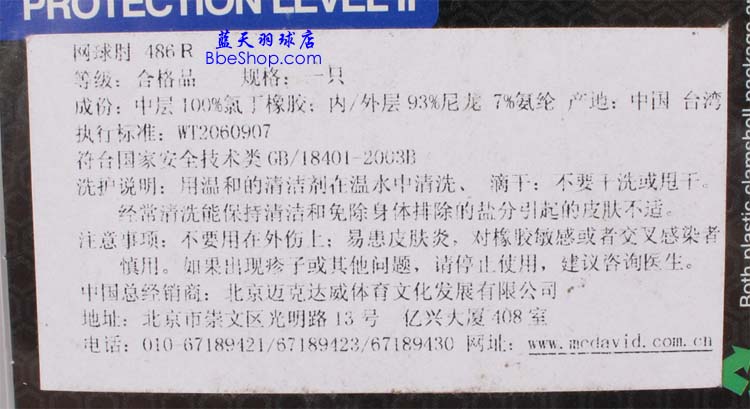 PROTECTION LEVEL II
蓝天羽球店
BbeShop.com
网球肘 486R
等级：合格品 规格：一只
成份：中层100%氯丁橡胶；内/外层93%尼龙 7%氨纶 产地：中国 台湾
执行标准：WT2060907
符合国家安全技术类GB/18401-2003B
洗护说明：用温和的清洁剂在温水中清洗、滴干；不要干洗或甩干。
经常清洗能保持清洁和免除身体排除的盐分引起的皮肤不适。
注意事项：不要用在外伤上；易患皮肤炎，对橡胶敏感或者交叉感染者
慎用。如果出现疹子或其他问题，请停止使用，建议咨询医生。
中国总经销商：北京迈克达威体育文化发展有限公司
地址：北京市崇文区光明路13号 亿兴大厦408室
电话：010-67189421/67189423/67189430 网址：www.mcdavid.com.cn
Both plastic clamshell package